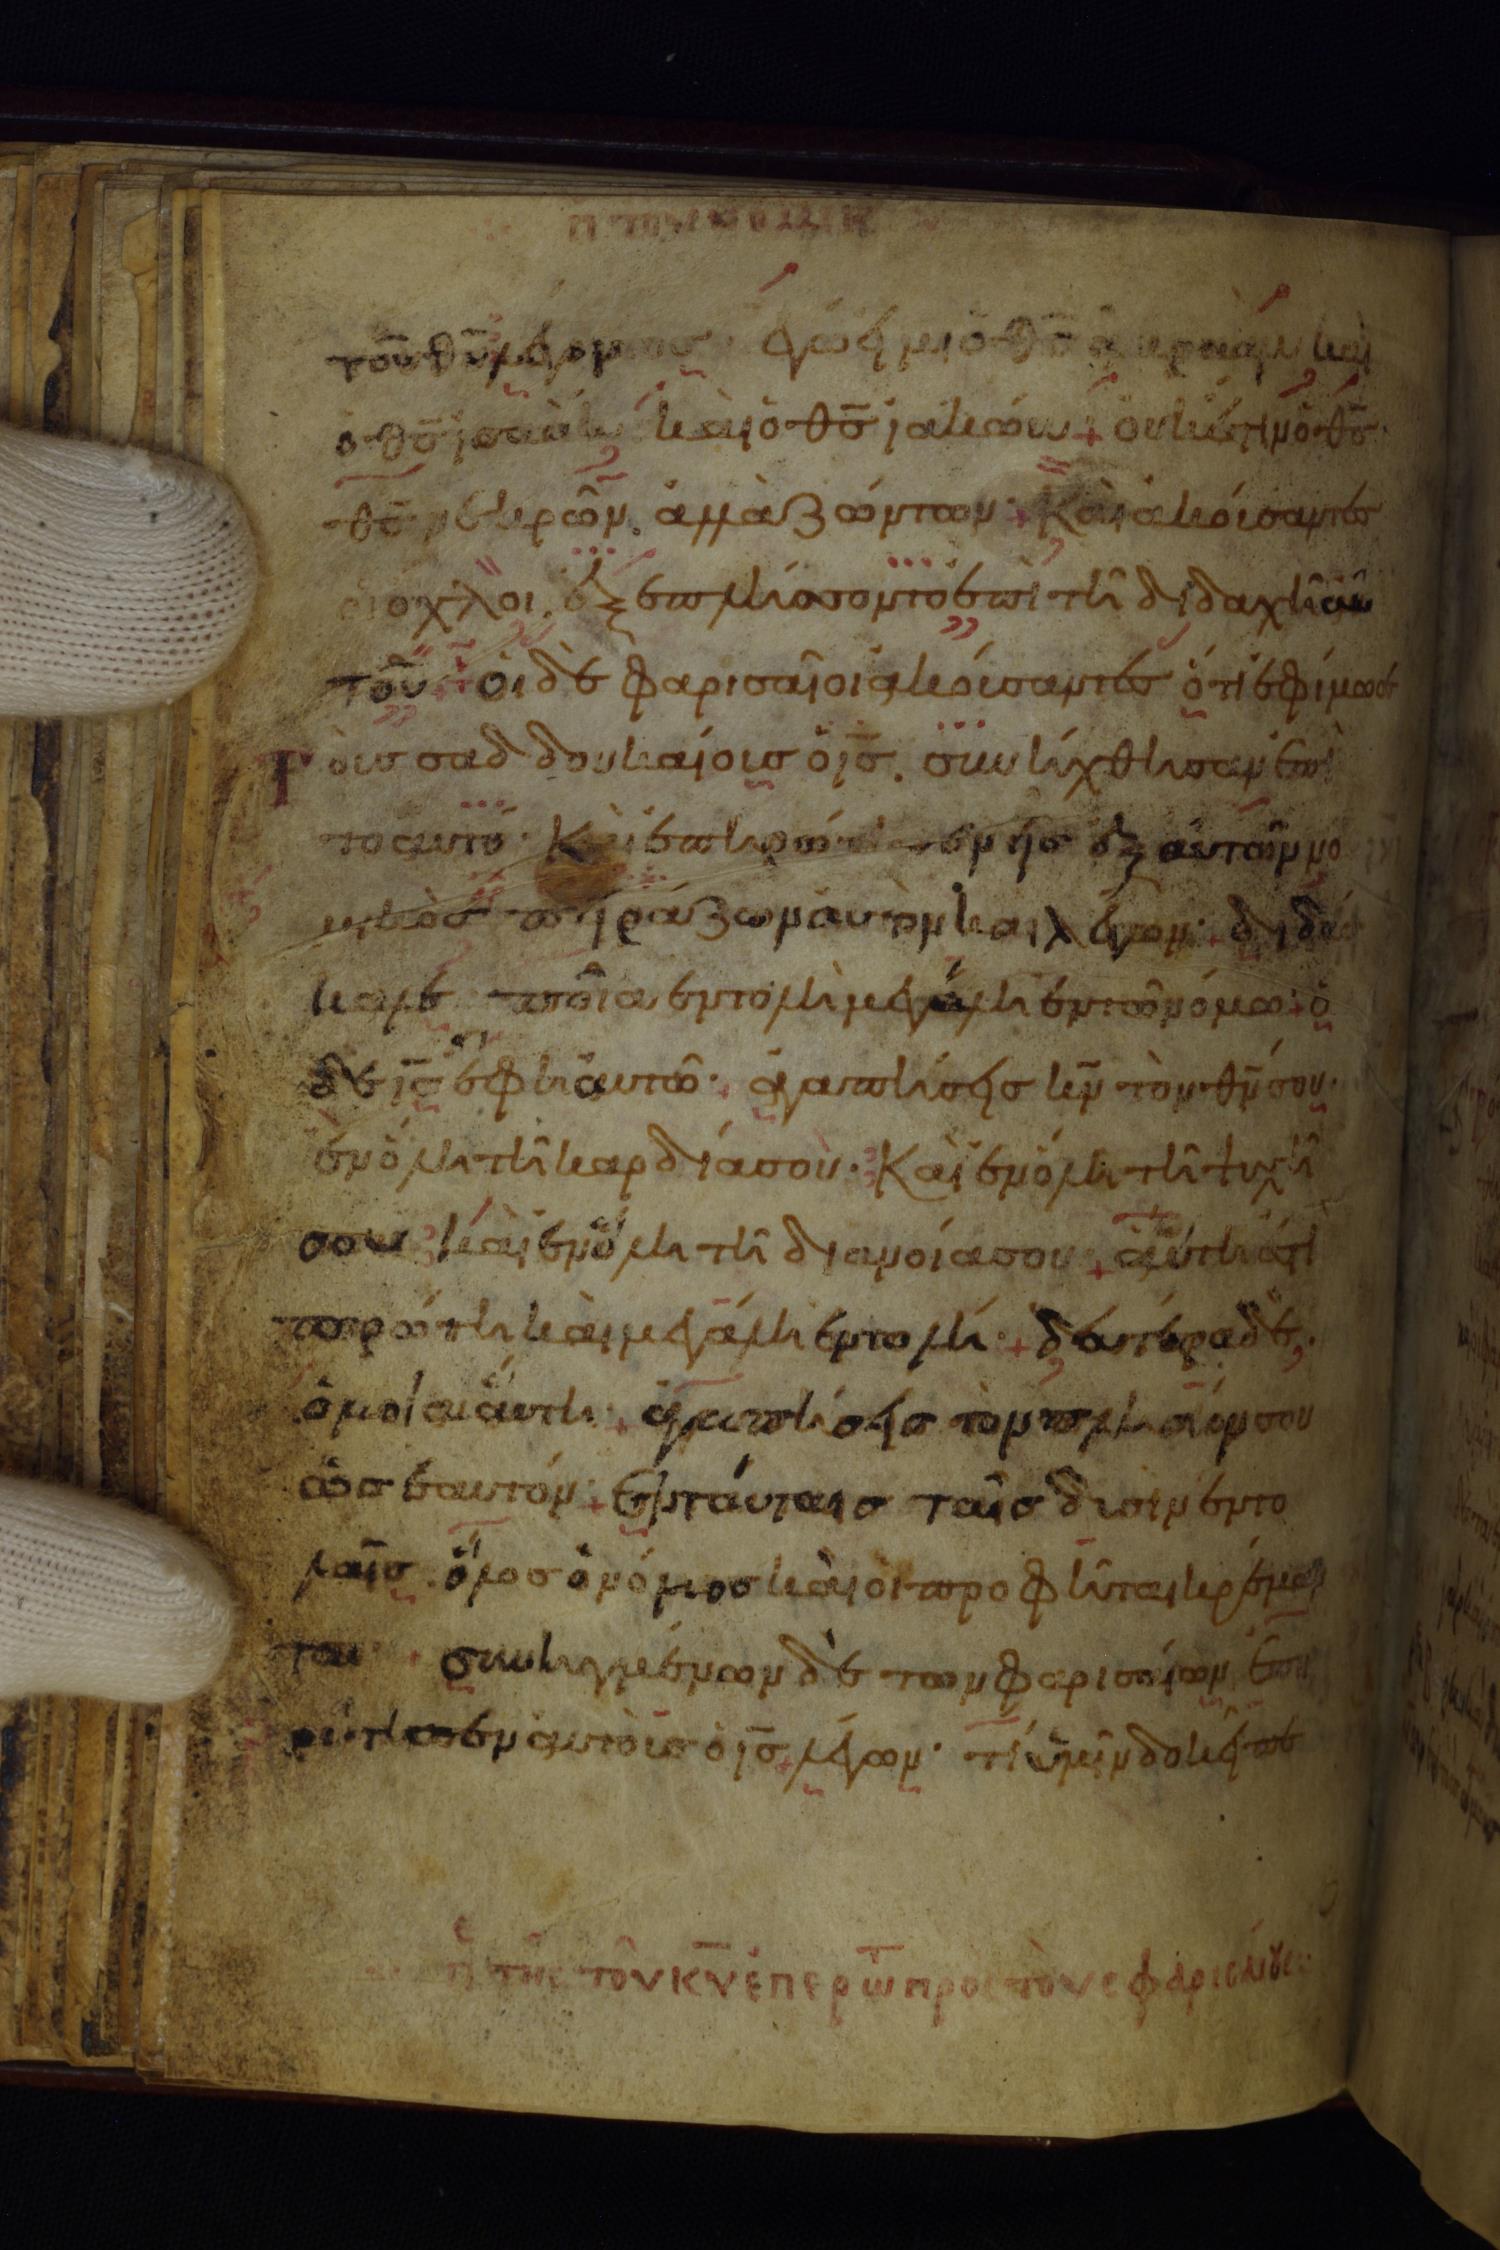 τοῦ θῦ λέγοντος· ἐγώ εἰμι ὁ θς ἀβραὰμ καὶ
ὁ θς ἰσαὰκ καὶ ὁ θς ἰακώβ + οὐκ ἔστιν ὁ θς
θς νεκρῶν. ἀλλὰ ζώντων· + Καὶ ἀκούσαντες
οἱ ὄχλοι. ἐξεπλήσσοντο ἐπὶ τῆ διδαχῆ αὐ
τοῦ + οἱ δὲ φαρισαῖοι ἀκούσαντες ὅτι ἐφίμωσε
Τοὺς σαδδουκαίους ὁ ις. συνήχθησαν ἐπὶ
τοαυτό· Καὶ ἐπηρώτησεν εἷς ἐξ αὐτῶν νο
μικὸς πειράζων αὐτὸν καὶ λέγων· + διδάσ
καλε ποῖα ἐντολὴ μεγάλη ἐν τῶ νόμω + ὁ
δὲ ις ἔφη αὐτῶ· + ἀγαπήσεις κν τὸν θν σου·
ἐν ὅλη τῆ καρδία σου· Καὶ ἐν ὅλη τῆ ψυχῆ
σου καὶ ἐν ὅλη τῆ διανοία σου + αὕτη ἐστὶ
πρώτη καὶ μεγάλη ἐντολή· + δευτέρα δὲ.
ὁμοία αὐτῆ· + ἀγαπήσεις τὸν πλησίον σου
ὡς ἑαυτόν· + Ἐν ταύταις ταῖς δυσὶν ἐντο
λαῖς. ὅλος ὁ νόμος καὶ οἱ προφῆται κρέμαν
ται + συνηγμένων δὲ των φαρισαίων ἐπη
ρώτησεν αὐτοὺς ὁ ις + λέγων· τί ὑμῖν δοκεῖ πε
τῆς τοῦ κυ ἐπερωτ προς τοὺς φαρισαίους